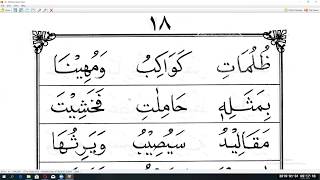 ١٨
ظُلُمَاتِ كَوَاكِبُ وَمُهِينًا
بِمَثَلِهٖ حَامِلٰتِ فَخَشِيْتَ
مَقَالِيْدُ سَيُصِيْبُ وَيَرِثُهَا